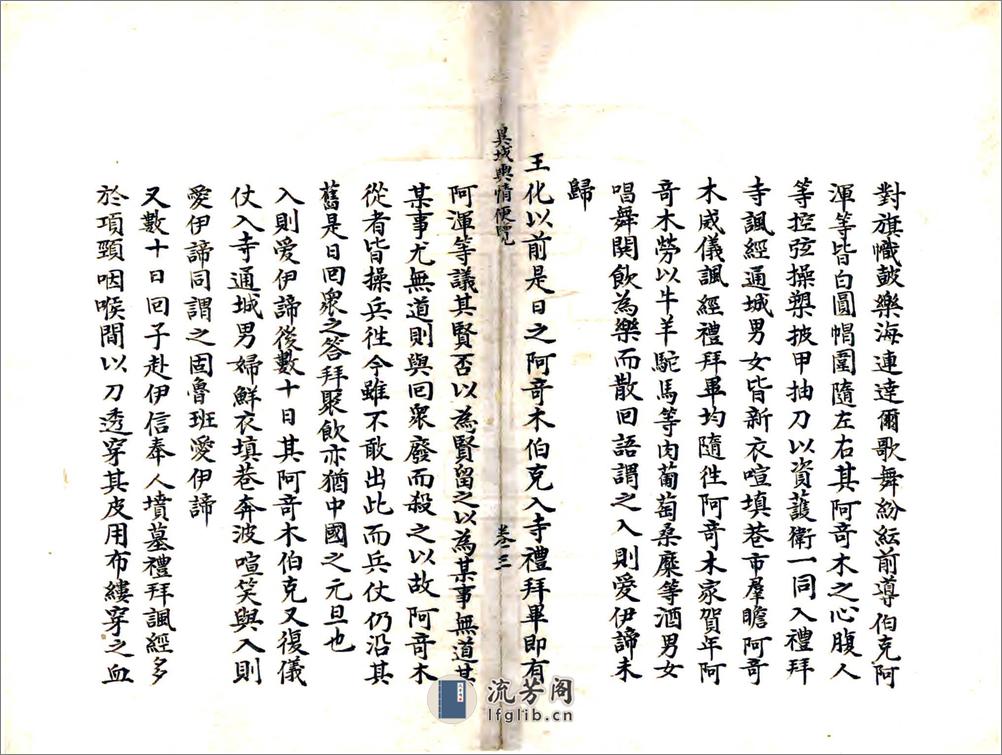 對旗幟鼓樂海連達爾歌舞紛紜前導伯克阿
渾等皆白圓帽圍隨左右其阿竒木之心腹人
等控弦操槊披甲抽刀以資䕶衛一同入禮拜
寺諷經通城男女皆新衣喧填巷市羣瞻阿竒
木威儀諷經禮拜畢均隨徃阿竒木家賀年阿
竒木勞以牛羊駝馬等肉葡萄桑糜等酒男女
唱舞閧飲為樂而散回語謂之入則愛伊諦未
歸
王化以前是日之阿竒木伯克入寺禮拜畢即有
異域輿情便覽
卷三
阿渾等議其賢否以為賢留之以為某事無道其
某事尤無道則與回衆廢而殺之以故阿竒木
從者皆操兵徃今雖不敢出此而兵仗仍沿其
舊是日回衆之答拜聚飲亦猶中國之元旦也
入則愛伊諦後數十日其阿竒木伯克又復儀
仗入寺通城男婦鮮衣填巷奔波喧笑與入則
愛伊諦同謂之固魯班愛伊諦
又數十日回子赴伊信奉人墳墓禮拜諷經多
於項頸咽喉間以刀透穿其皮用布縷穿之血
流芳阁
lfglib.cn